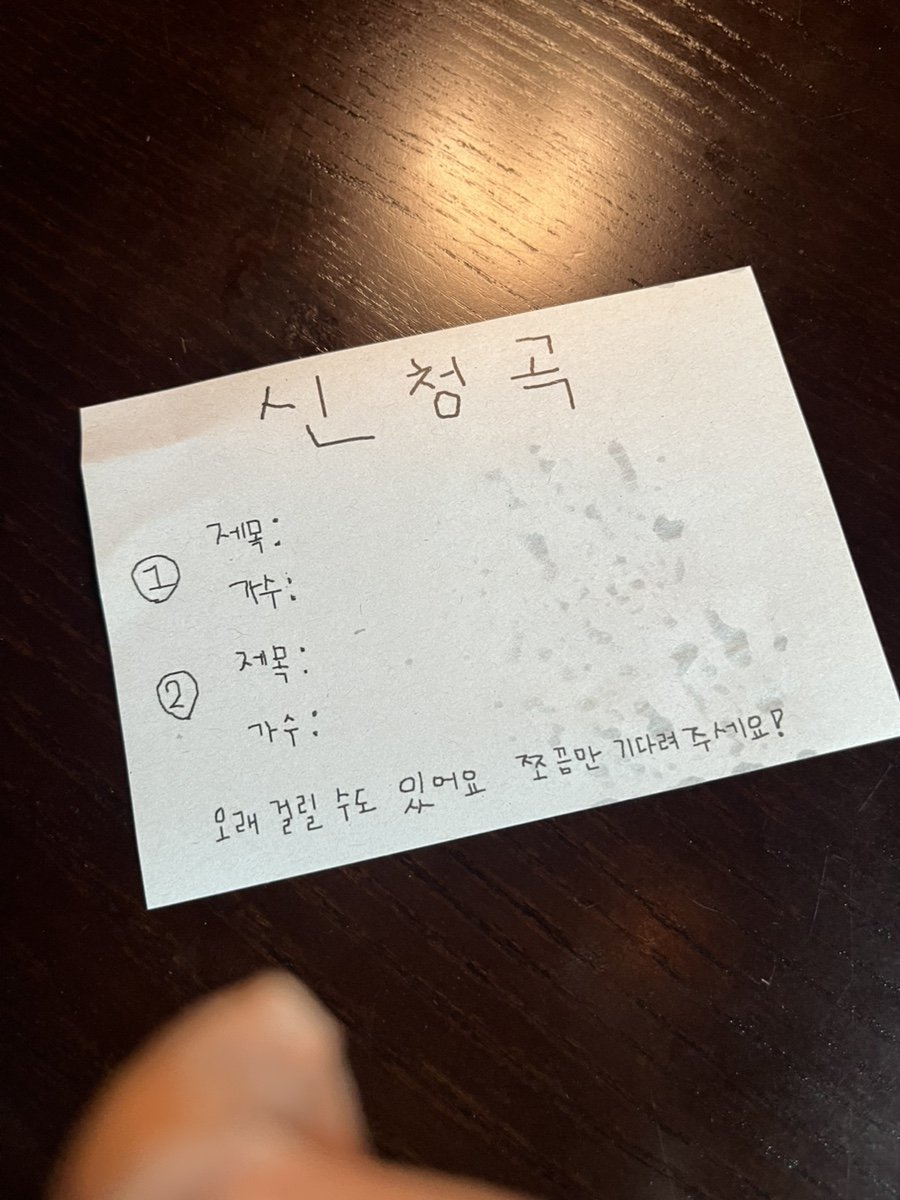 신청곡
① 제목:
가수:
② 제목:
가수:
오래 걸릴 수도 있어요 쪼끔만 기다려주세요!